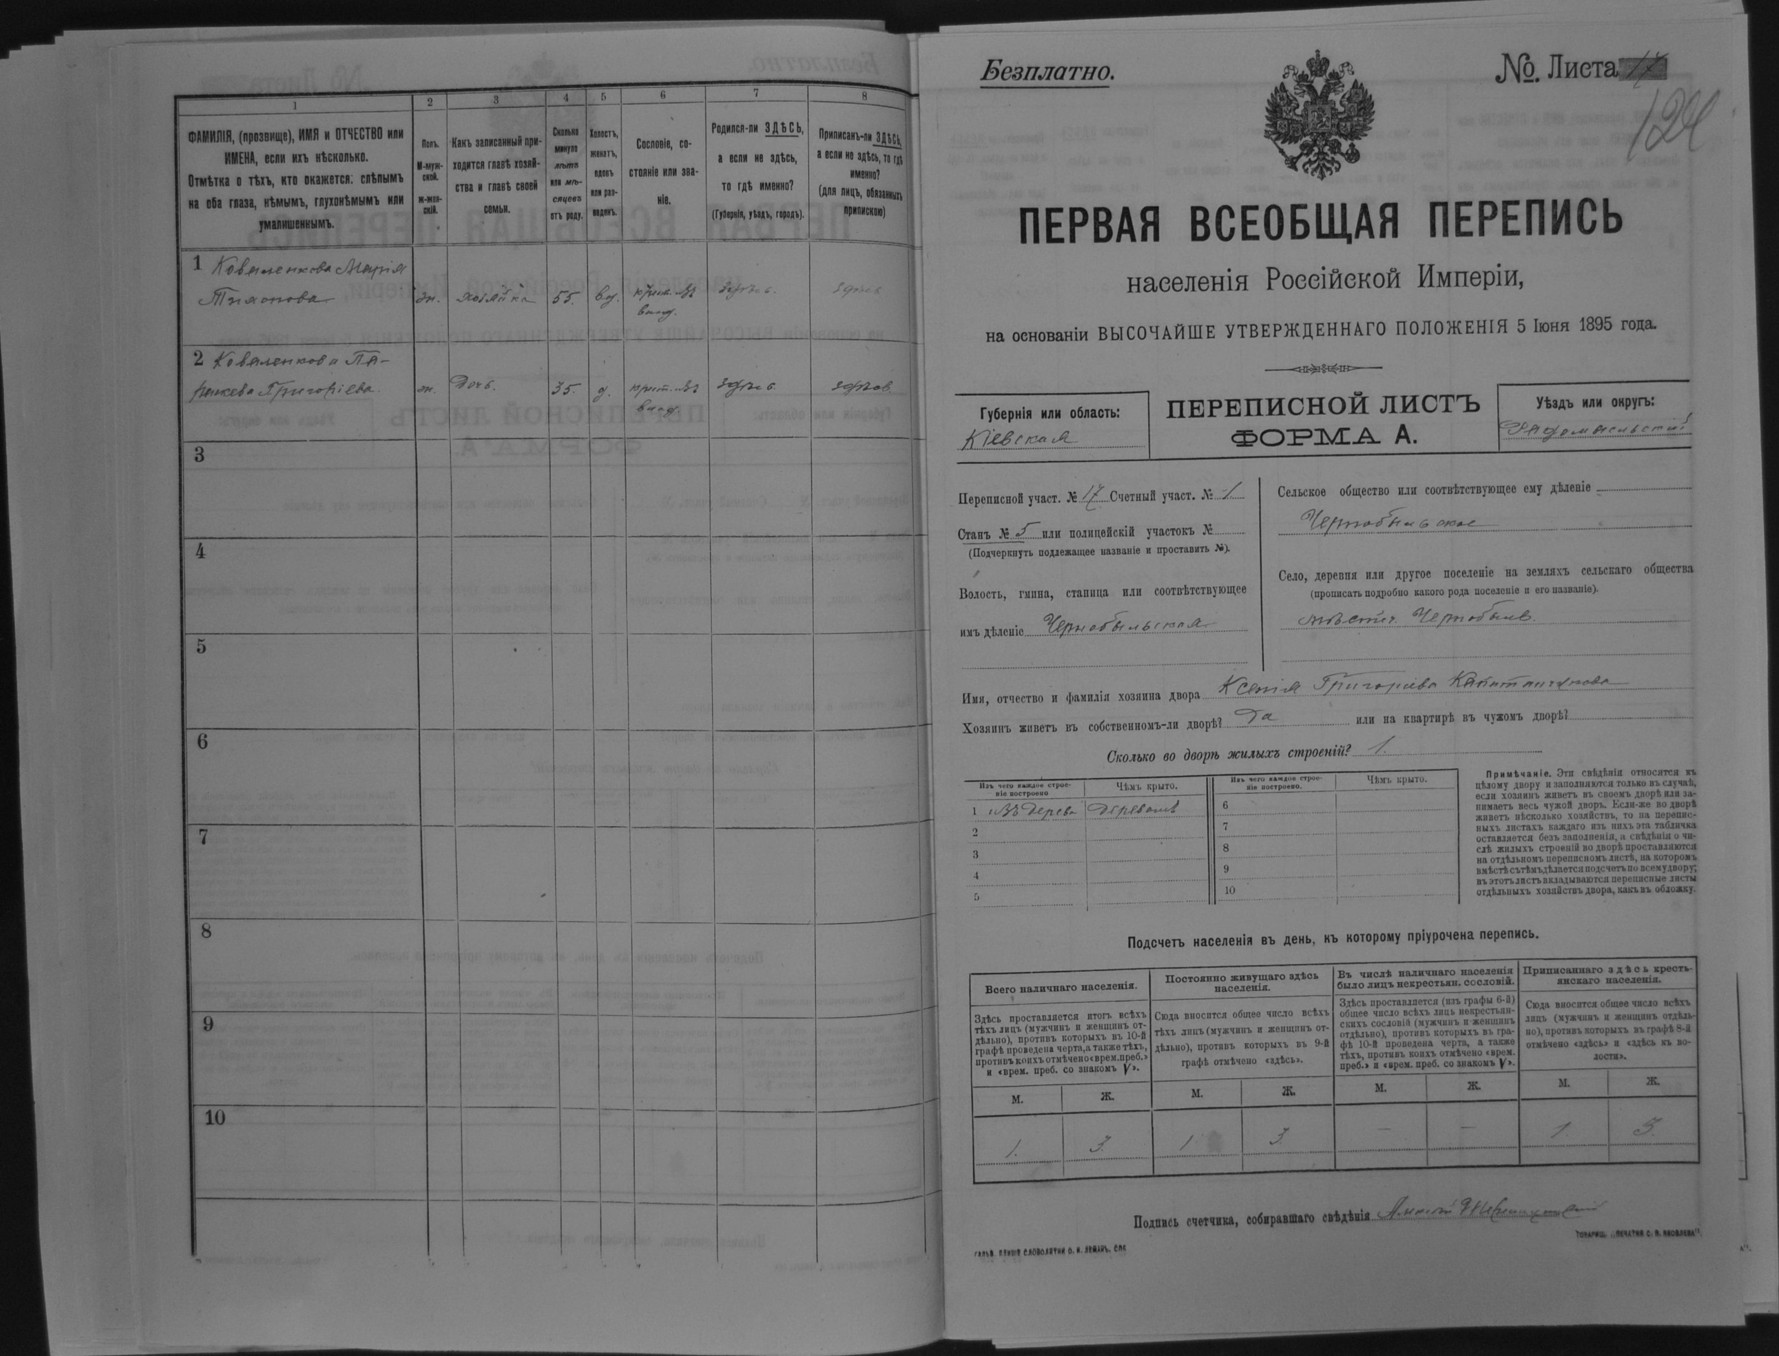 1
2
3
4
5
6
7
8
ФАМИЛІЯ, (прозвище), ИМЯ и ОТЧЕСТВО или
ИМЕНА, если ихъ нѣсколько.
Отмѣтка о тѣхъ, кто окажется: слѣпымъ
на оба глаза, нѣмымъ, глухонѣмымъ или
умалишеннымъ.
Полъ.
М-муж-
ской.
ж-жен-
скій.
Какъ записанный при-
ходится главѣ хозяй-
ства и главѣ своей
семьи.
Сколько
минуло
лѣтъ
или мѣ-
сяцевъ
отъ роду.
Холостъ,
женатъ,
вдовъ
или раз-
веденъ.
Сословіе, со-
стояніе или зва-
ніе.
Родился-ли ЗДѢСЬ,
а если не здѣсь,
то гдѣ именно?
(Губернія, уѣздъ, городъ).
Приписанъ-ли ЗДѢСЬ,
а если не здѣсь, то гдѣ
именно?
(для лицъ, обязанныхъ
припискою)
1 Коваленкова Марія
Тимонова
ж. хозяйка 55. вд. здѣсь. здѣсь
2 Коваленкова Па-
раскева Григоріева
ж. Дочь. 35. д. здѣсь. здѣсь
3
4
5
6
7
8
9
10
Безплатно.
№ Листа 17
124
ПЕРВАЯ ВСЕОБЩАЯ ПЕРЕПИСЬ
населенія Россійской Имперіи,
на основаніи ВЫСОЧАЙШЕ УТВЕРЖДЕННАГО ПОЛОЖЕНІЯ 5 Іюня 1895 года.
Губернія или область:
Кіевская
ПЕРЕПИСНОЙ ЛИСТЪ
ФОРМА А.
Уѣздъ или округъ:
Радомысльскій
Переписной участ. № 17 Счетный участ. № 1
Станъ № 5 или полицейскій участокъ №
(Подчеркнуть подлежащее названіе и проставить №).
Волость, гмина, станица или соотвѣтствующее
имъ дѣленіе Чернобыльская
Сельское общество или соотвѣтствующее ему дѣленіе
Чернобыльское
Село, деревня или другое поселеніе на земляхъ сельскаго общества
(прописать подробно какого рода поселеніе и его названіе).
мѣстеч. Чернобыль.
Имя, отчество и фамилія хозяина двора Ксенія Григоріева Капитанчукова
Хозяинъ живетъ въ собственномъ-ли дворѣ? Да или на квартирѣ въ чужомъ дворѣ?
Сколько во дворѣ жилыхъ строеній? 1.
Изъ чего каждое строе-
ніе построено
Чѣмъ крыто.
Изъ чего каждое строе-
ніе построено.
Чѣмъ крыто.
1 изъ дерева деревомъ
2
3
4
5
6
7
8
9
10
Примѣчаніе. Эти свѣдѣнія относятся къ
цѣлому двору и заполняются только въ случаѣ,
если хозяинъ живетъ въ своемъ дворѣ или за-
нимаетъ весь чужой дворъ. Если-же во дворѣ
живетъ нѣсколько хозяйствъ, то на перепис-
ныхъ листахъ каждаго изъ нихъ эта табличка
оставляется безъ заполненія, а свѣдѣнія о чи-
слѣ жилыхъ строеній во дворѣ проставляются
на отдѣльномъ переписномъ листѣ, на которомъ
вмѣстѣ съ тѣмъ дѣлается подсчетъ по всему двору;
въ этотъ листъ вкладываются переписные листы
отдѣльныхъ хозяйствъ двора, какъ въ обложку.
Подсчетъ населенія въ день, къ которому пріурочена перепись.
Всего наличнаго населенія.
Здѣсь проставляется итогъ всѣхъ
тѣхъ лицъ (мужчинъ и женщинъ от-
дѣльно), противъ которыхъ въ 10-й
графѣ проведена черта, а также тѣхъ,
противъ коихъ отмѣчено «врем. преб.»
и «врем. преб. со знакомъ V».
Постоянно живущаго здѣсь
населенія.
Сюда вносится общее число всѣхъ
тѣхъ лицъ (мужчинъ и женщинъ от-
дѣльно), противъ которыхъ въ 9-й
графѣ отмѣчено «здѣсь».
Въ числѣ наличнаго населенія
было лицъ некрестьян. сословій.
Здѣсь проставляется (изъ графы 6-й)
общее число всѣхъ лицъ некрестьян-
скихъ сословій (мужчинъ и женщинъ
отдѣльно), противъ которыхъ въ гра-
фѣ 10-й проведена черта, а также
тѣхъ, противъ коихъ отмѣчено «врем.
преб.» и «врем. преб. со знакомъ V».
Приписаннаго здѣсь кресть-
янскаго населенія.
Сюда вносится общее число всѣхъ
лицъ (мужчинъ и женщинъ отдѣль-
но), противъ которыхъ въ графѣ 8-й
отмѣчено «здѣсь» и «здѣсь къ во-
лости».
М. Ж. М. Ж. М. Ж. М. Ж.
1. 3. 1 3. — — 1. 3.
Подпись счетчика, собиравшаго свѣдѣнія